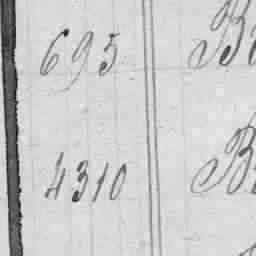 695 B
4310 B